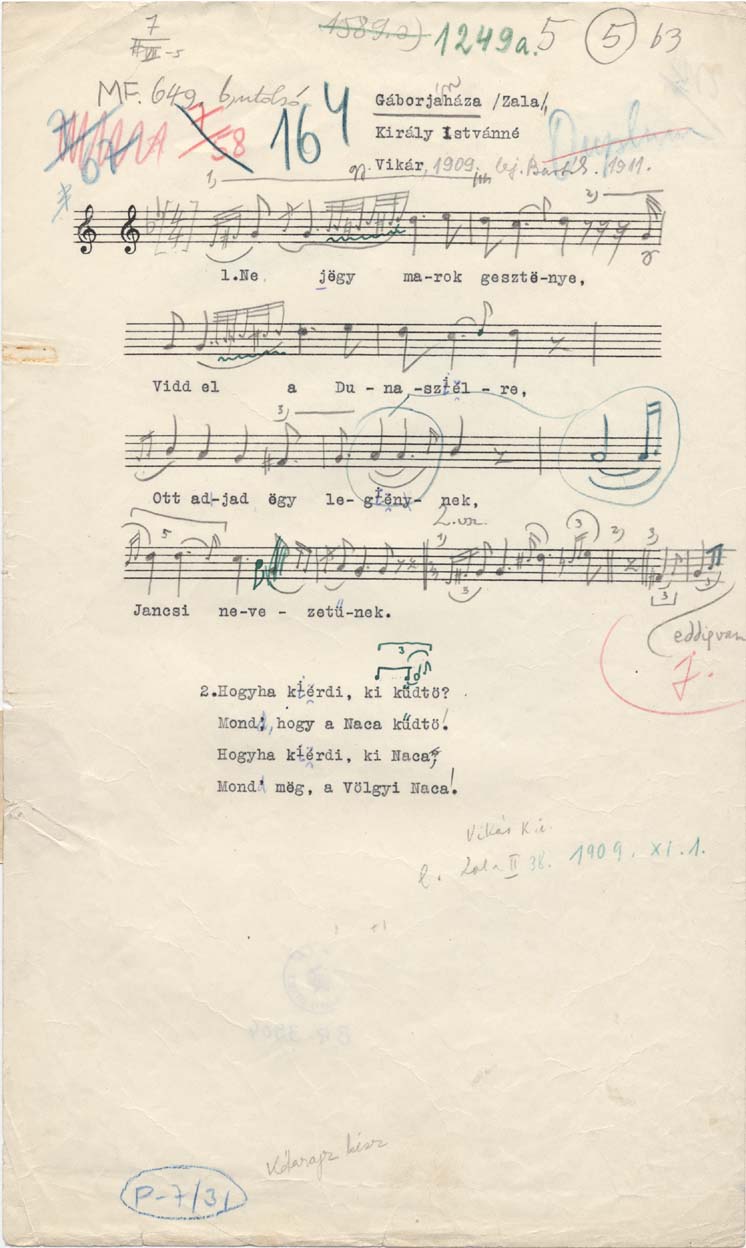 7
#VII-5
1589.a) 1249a. 5 5 b3
MF. 649. b, utolsó
164
58
67
Gáborjáháza /Zala/,
Király Istvánné
Duplum
Vikár, 1909. lej. Bartók. 1911.
1, 2,
1.Ne jëgy ma-rok gesztë-nye,
Vidd el a Du - na -sziél - re,
3,
Ott ad-jad ëgy le- gíény- nek,
2. vsz.
5 1) 3 3 2) 3)
3
Jancsi ne-ve - zetű-nek.
eddig van
J.
3
2.Hogyha kiérdi, ki kűdtö?
Mond, hogy a Naca kűdtö!
Hogyha kiérdi, ki Naca,
Mond mëg, a Völgyi Naca!
Vikár K.i.
l. Zala II 38. 1909. XI. 1.
Kótarajz kész
P-7/31